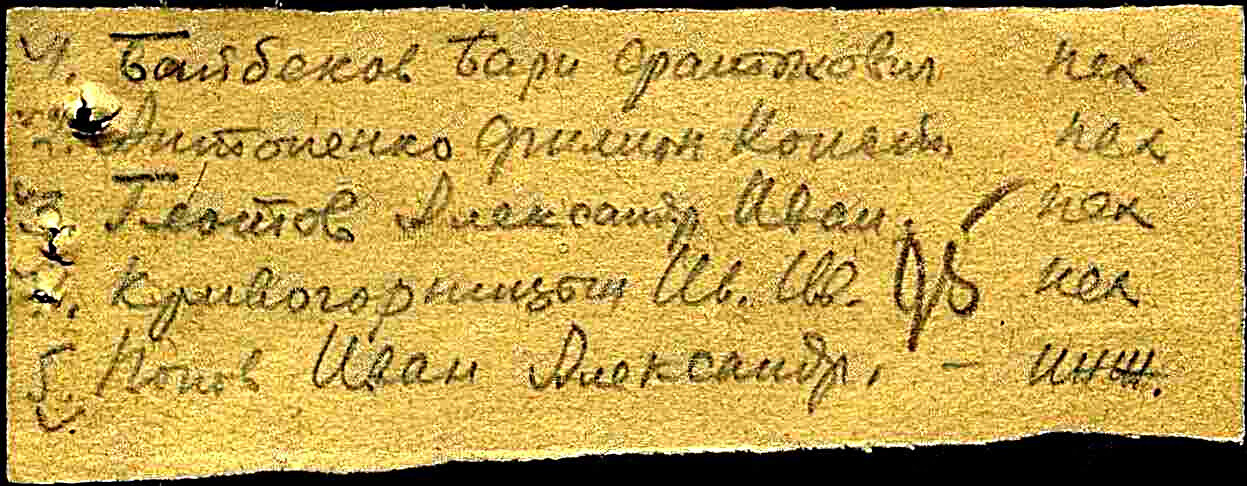 1. Байбеков Бари Фратыхович пех
2. Антопенко Филимон пех
3. Глотов Александр Иван. пех
4. Кривогорницын Ив. Ив. пех
5. Попов Иван Александр. - инж.